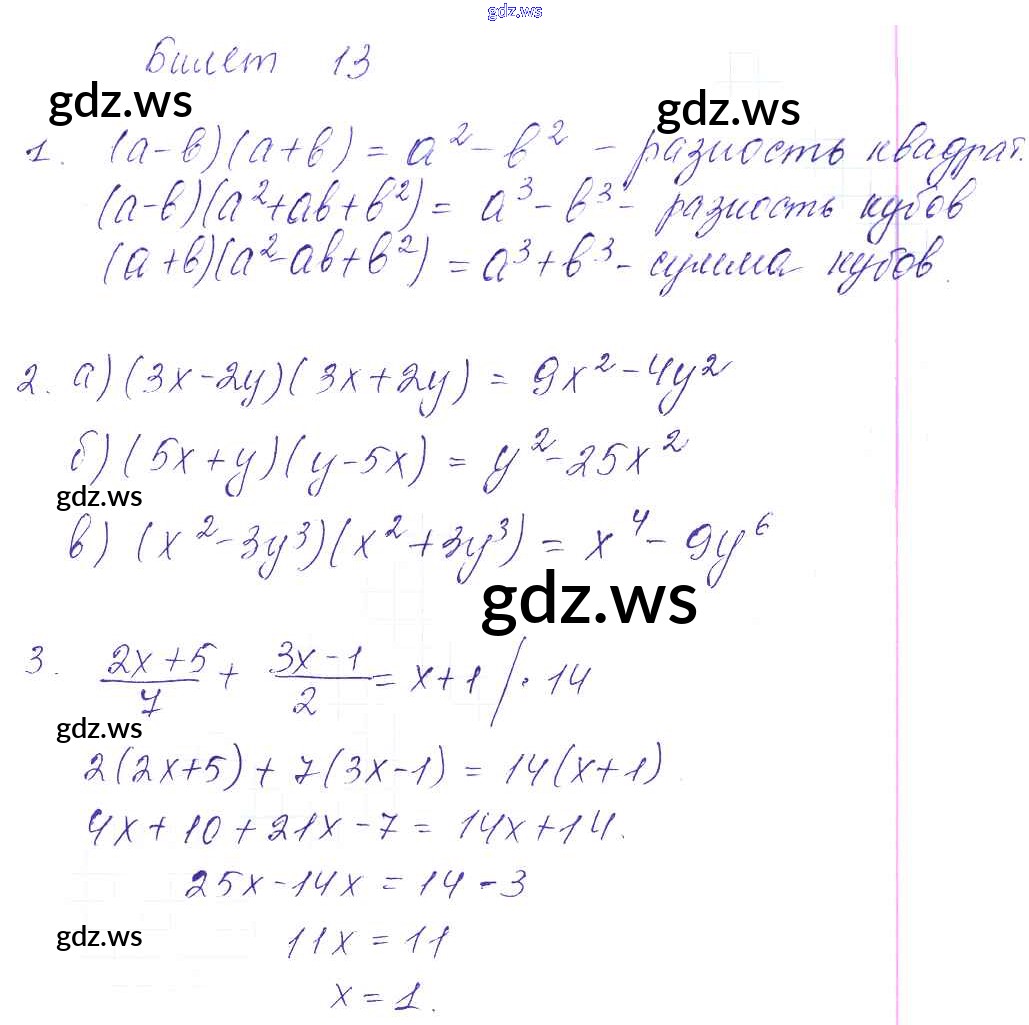 gdz.ws
Билет 13
gdz.ws
gdz.ws
1. (a-b)(a+b) = a² - b² - разность квадрат.
(a-b)(a²+ab+b²) = a³ - b³ - разность кубов
(a+b)(a²-ab+b²) = a³+b³ - сумма кубов.
2. а) (3x-2y)(3x+2y) = 9x² - 4y²
б) (5x+y)(y-5x) = y² - 25x²
gdz.ws
в) (x² - 3y³)(x² + 3y³) = x⁴ - 9y⁶
gdz.ws
3. (2x+5)/7 + (3x-1)/2 = x+1 /· 14
gdz.ws
2(2x+5) + 7(3x-1) = 14(x+1)
4x+10+21x-7 = 14x+14.
25x-14x = 14-3
gdz.ws
11x = 11
x = 1.